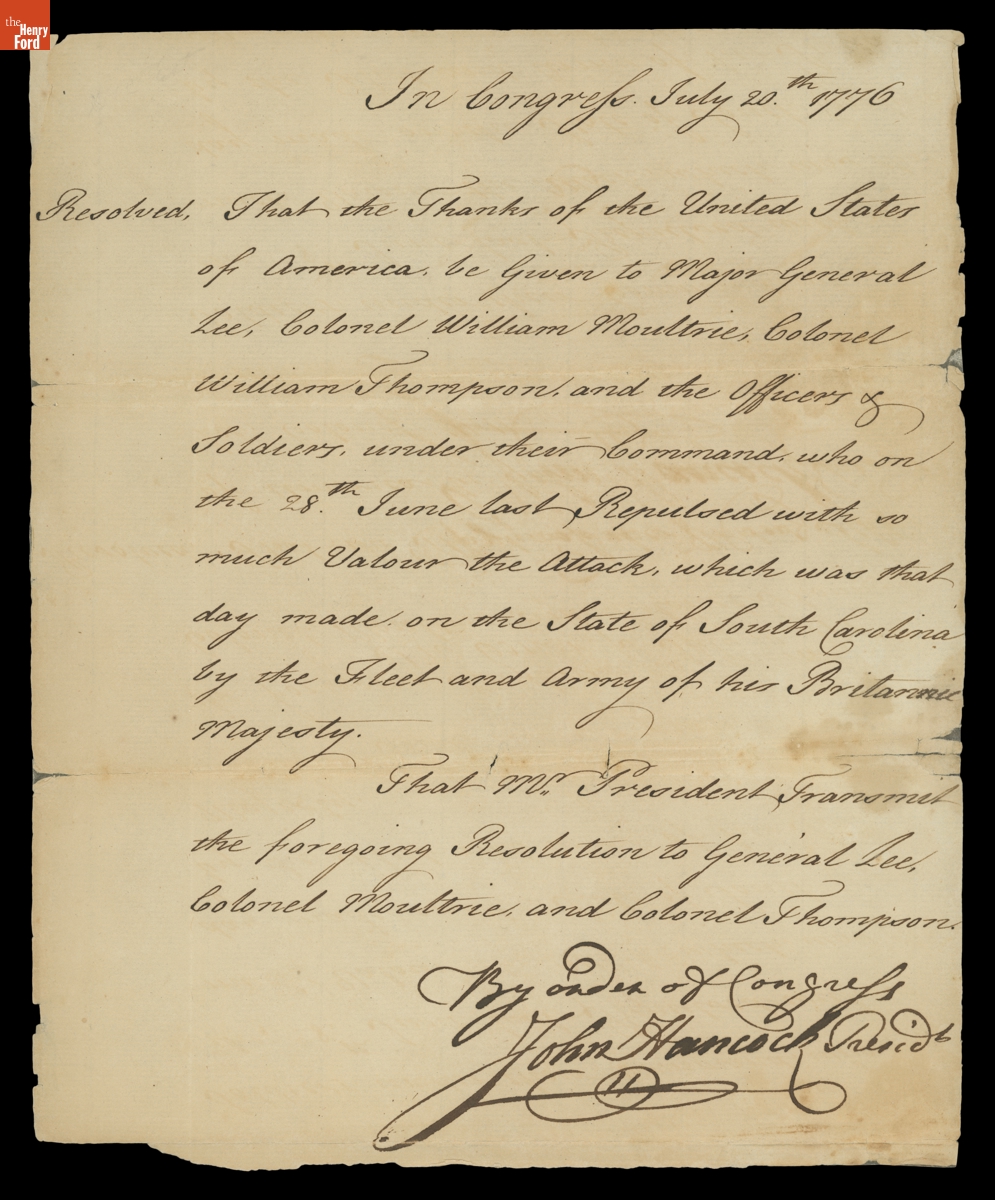 the
Henry
Ford
In Congress. July 20.th 1776
Resolved, That the Thanks of the United States
of America, be Given to Major General
Lee, Colonel William Moultrie, Colonel
William Thompson, and the Officers &
Soldiers, under their Command, who on
the 28.th June last Repulsed with so
much Valour the Attack, which was that
day made on the State of South Carolina
by the Fleet and Army of his Britannic
Majesty.
That Mr. President Transmit
the foregoing Resolution to General Lee,
Colonel Moultrie, and Colonel Thompson.
By order of Congress
John Hancock Presidt